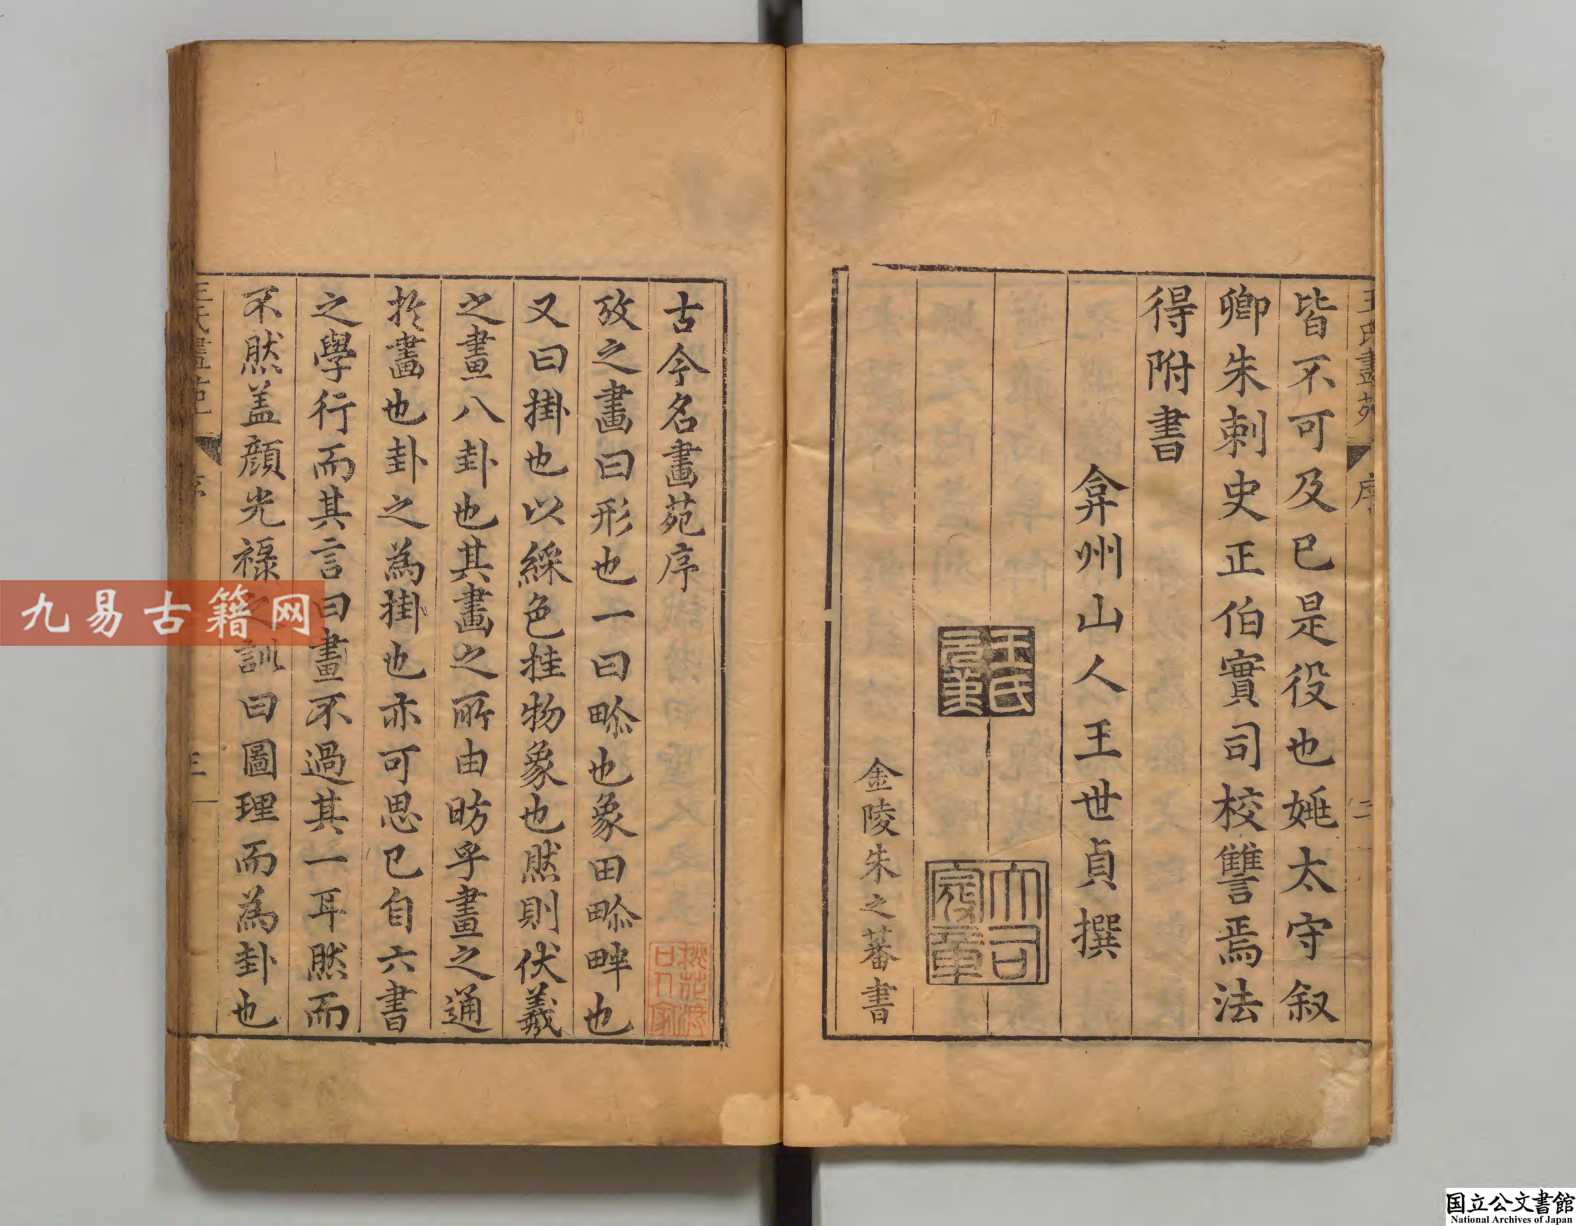 王氏畫苑 序 二
皆不可及已是役也姬太守叙
卿朱刺史正伯實司校讐焉法
得附書
弇州山人王世貞撰
王氏元美
大司寇章
金陵朱之蕃書
古今名畫苑序
攷之畫曰形也一曰畛也象田畛畔也
又曰掛也以綵色挂物象也然則伏羲
之畫八卦也其畫之所由昉乎畫之通
於畫也卦之為掛也亦可思已自六書
之學行而其言曰畫不過其一耳然而
不然盖顔光祿之訓曰圖理而為卦也
王氏畫苑 序 三
九易古籍网
国立公文書館
National Archives of Japan